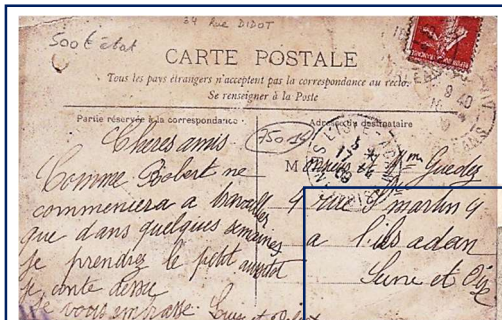 34 Rue DIDOT
500 t état
CARTE POSTALE
Tous les pays étrangers n'acceptent pas la correspondance au recto.
Se renseigner à la Poste
Partie réservée à la correspondance
Adresse du destinataire
75014
Cheres amis
Comme Robert ne
commencera a travailler
que dans quelques semaines
je prendrez le petit
je conte dessu
Je vous embrasse
M
Guedez
9 rue St martin 9
a l'ils adan
Seine et Oise
L'ISLE-ADAM
9 40